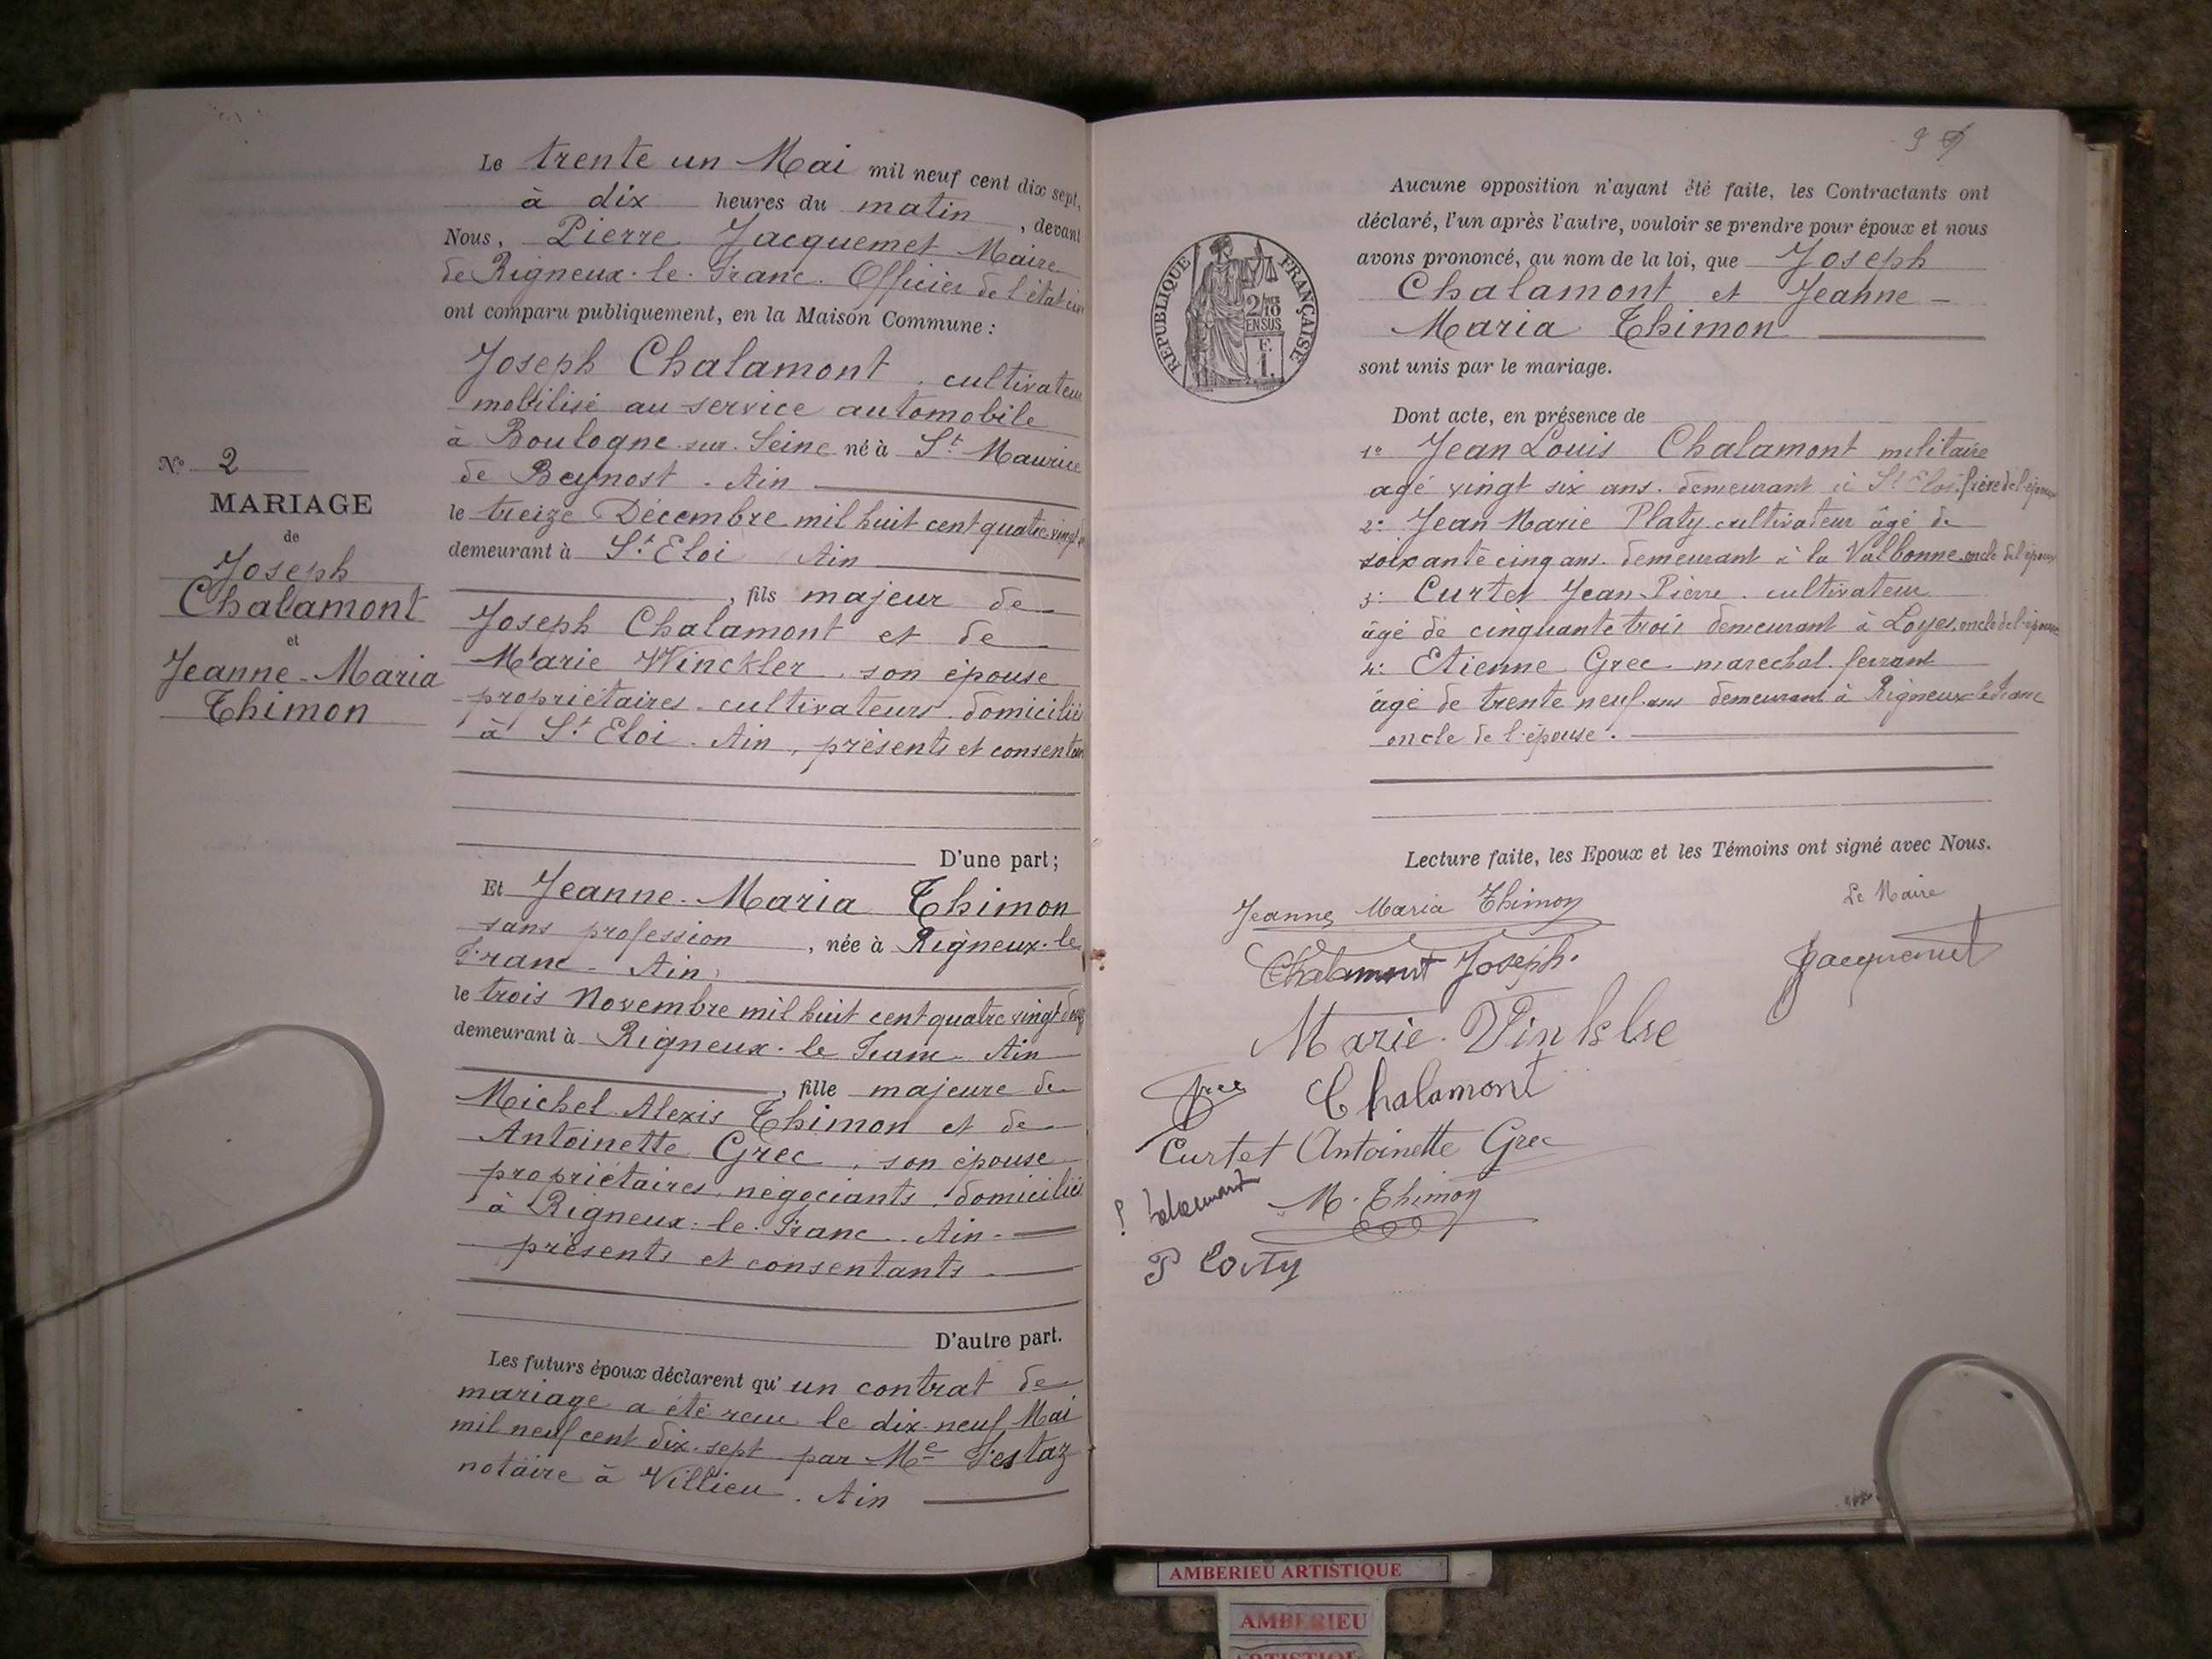 Le trente un Mai mil neuf cent dix sept,
à dix heures du matin, devant
Nous, Pierre Jacquemet Maire
de Rigneux-le-Franc. Officier de l'état civ
ont comparu publiquement, en la Maison Commune :
Joseph Chalamont, cultivateur
mobilisé au service automobile
à Boulogne-sur-Seine né à St Maurice
de Beynost - Ain
le treize Décembre mil huit cent quatre vingt
demeurant à St Eloi Ain
, fils majeur de
Joseph Chalamont et de
Marie Winckler, son épouse
propriétaires-cultivateurs domiciliés
à St Eloi. Ain, présents et consentan
D'une part ;
Et Jeanne-Maria Thimon
sans profession, née à Rigneux-le
Franc - Ain,
le trois Novembre mil huit cent quatre vingt
demeurant à Rigneux-le Franc. Ain
, fille majeure de
Michel Alexis Thimon et de
Antoinette Grec, son épouse
propriétaires, négociants, domiciliés
à Rigneux-le-Franc. Ain.
présents et consentants
D'autre part.
Les futurs époux déclarent qu'un contrat de
mariage a été reçu le dix-neuf Mai
mil neuf cent dix-sept par Me Festaz
notaire à Villieu. Ain
No 2
MARIAGE
de
Joseph
Chalamont
et
Jeanne-Maria
Thimon
RÉPUBLIQUE FRANÇAISE
2/10
EN SUS
F.
1.
Aucune opposition n'ayant été faite, les Contractants ont
déclaré, l'un après l'autre, vouloir se prendre pour époux et nous
avons prononcé, au nom de la loi, que Joseph
Chalamont et Jeanne-
Maria Thimon
sont unis par le mariage.
Dont acte, en présence de
1o Jean Louis Chalamont militaire
agé vingt six ans. demeurant à St Eloi. frère de l'époux
2o Jean Marie Platy cultivateur âgé de
soixante cinq ans. demeurant à la Valbonne. oncle de l'époux
3o Curtet Jean-Pierre. cultivateur
âgé de cinquante trois demeurant à Loyes, oncle de l'épouse
4o Etienne Grec. marechal. ferrant
âgé de trente neuf ans demeurant à Rigneux le Franc
oncle de l'épouse.
Lecture faite, les Epoux et les Témoins ont signé avec Nous.
Jeanne Maria Thimon
Le Maire
Chalamont Joseph.
Jacquemet
Marie
Grec
Chalamont
Curtet Antoinette Grec
M. Thimon
AMBERIEU ARTISTIQUE
AMBERIEU
ARTISTIQUE